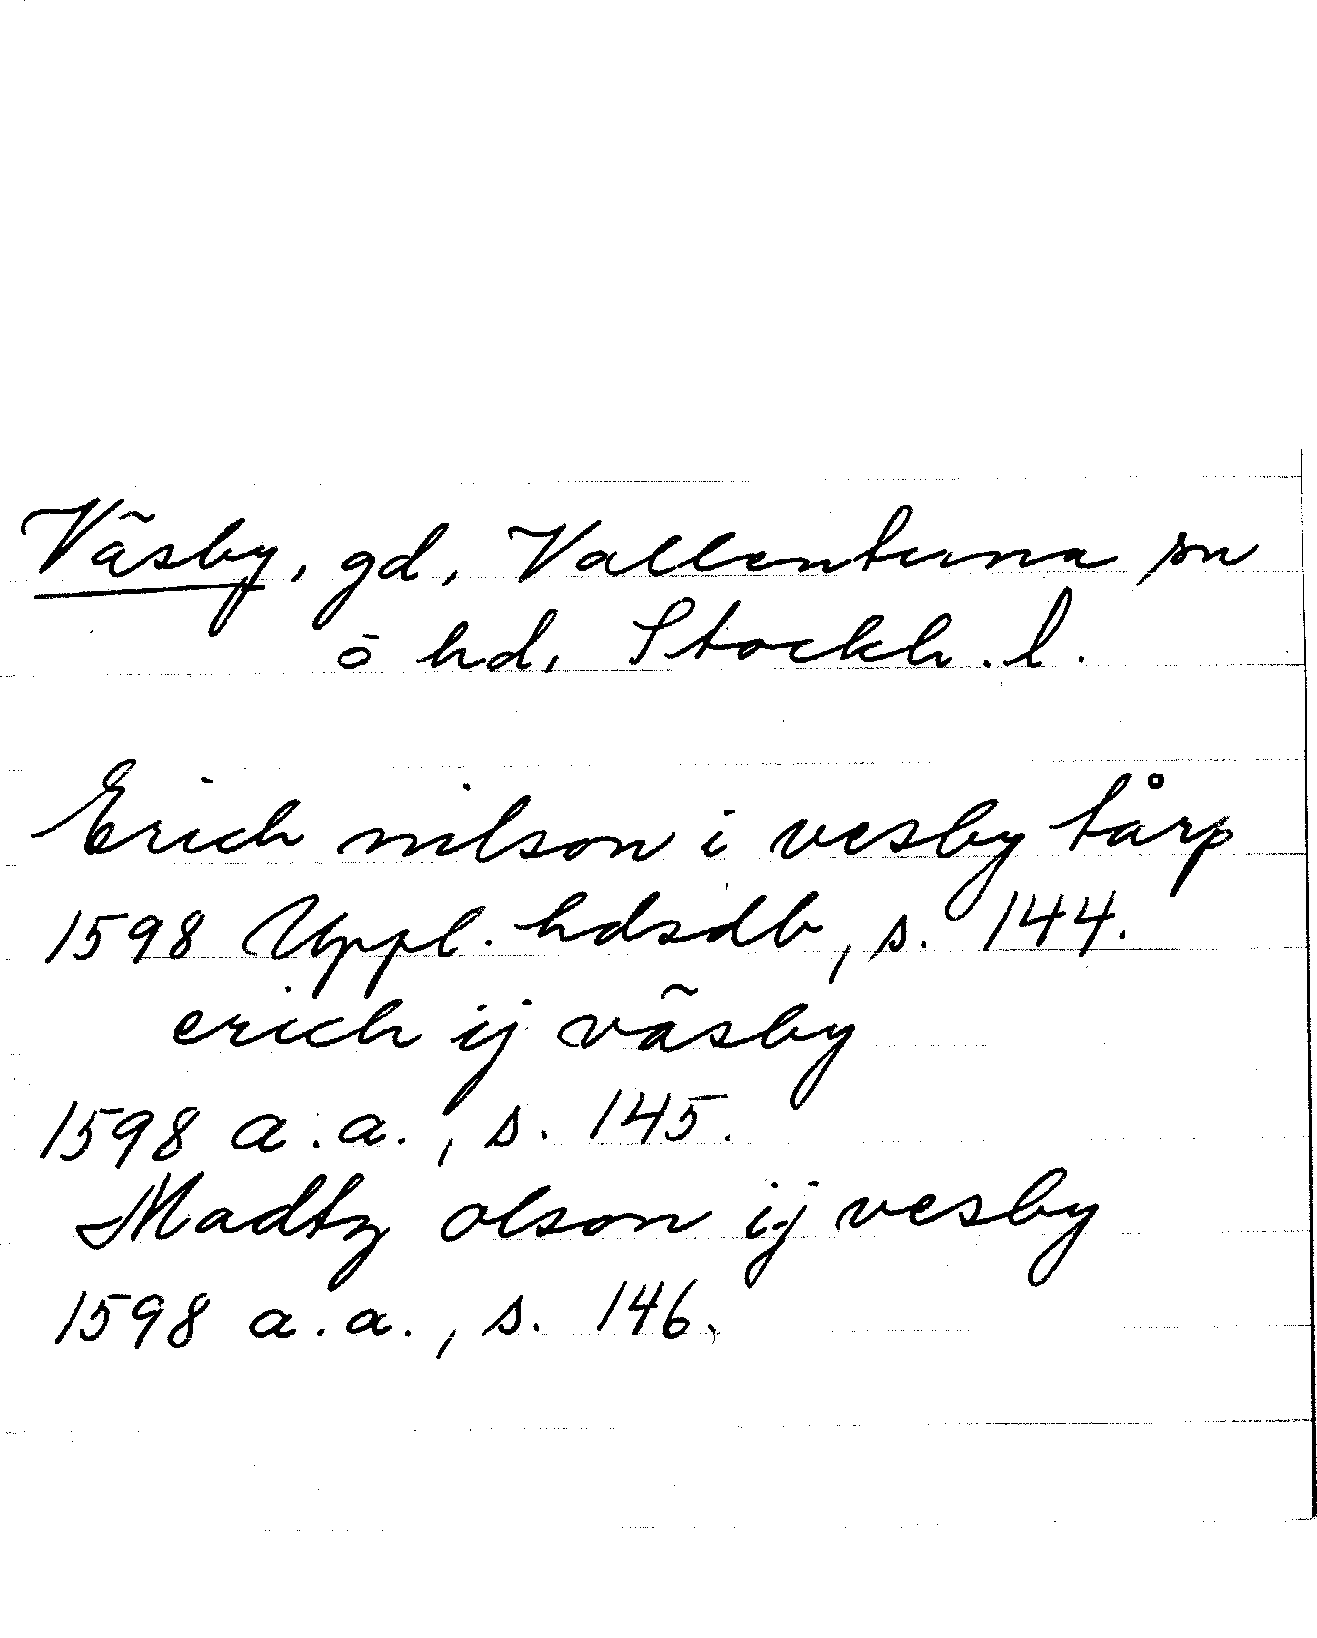 Väsby, gd, Vallentuna sn
ö hd, Stockh. l.
Erich nilson i vesby tårp
1598 Uppl. hdsdb, s. 144.
erich ij väsby
1598 a.a., s. 145.
Madtz olson ij vesby
1598 a.a., s. 146.